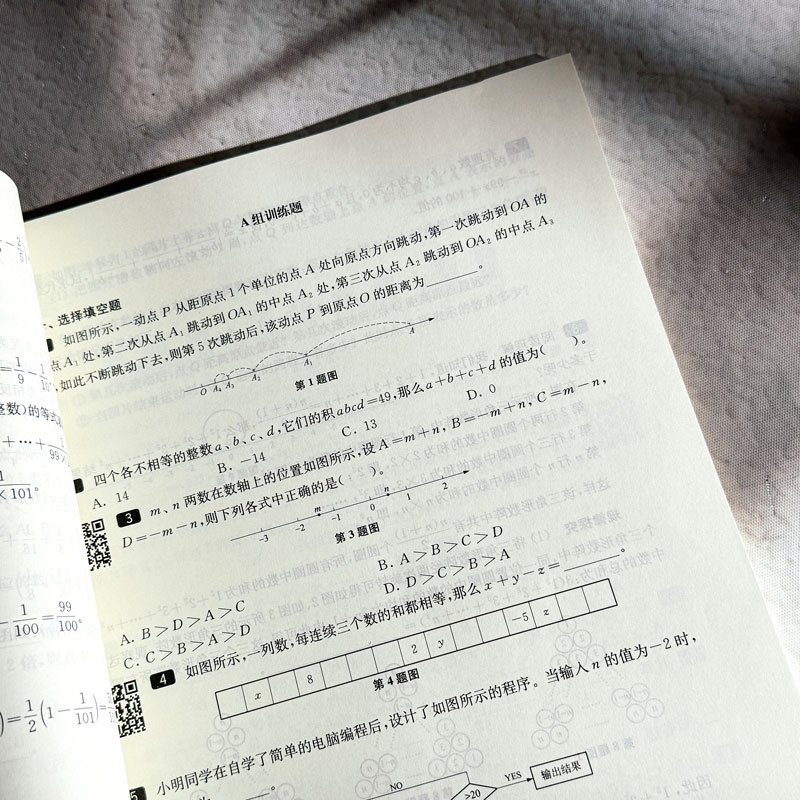 A组训练题
、选择填空题
如图所示,一动点 P 从距原点 1 个单位的点 A 处向原点方向跳动,第一次跳动到 OA 的
点 A₁ 处,第二次从点 A₁ 跳动到 OA₁ 的中点 A₂ 处,第三次从点 A₂ 跳动到 OA₂ 的中点 A₃
,如此不断跳动下去,则第 5 次跳动后,该动点 P 到原点 O 的距离为______。
O A₄ A₃ A₂ A₁ A
第 1 题图
四个各不相等的整数 a、b、c、d,它们的积 abcd=49,那么 a+b+c+d 的值为( )。
A. 14 B. -14 C. 13 D. 0
3 m、n 两数在数轴上的位置如图所示,设 A=m+n, B=-m+n, C=m-n,
D=-m-n,则下列各式中正确的是( )。
-3 -2 m -1 0 n 1 2
第 3 题图
A. B>D>A>C B. A>B>C>D
C. C>B>A>D D. D>C>B>A
4 如图所示,一列数,每连续三个数的和都相等,那么 x+y-z=______。
x 8 2 y -5 z
第 4 题图
5 小明同学在自学了简单的电脑编程后,设计了如图所示的程序。当输入 n 的值为-2 时,
NO >20 YES 输出结果
=1/9-
整数)的等式
+…+1/99×
×101°
1/100=99/100°
)=1/2(1-1/101)=